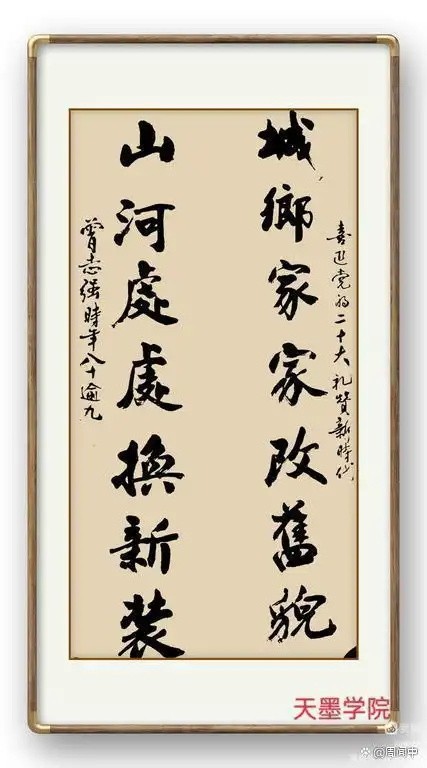 喜迎党的二十大 礼赞新時代
城鄉家家改舊貌
山河處處換新装
曾志强時年八十逾九
天墨学院
@周闻中